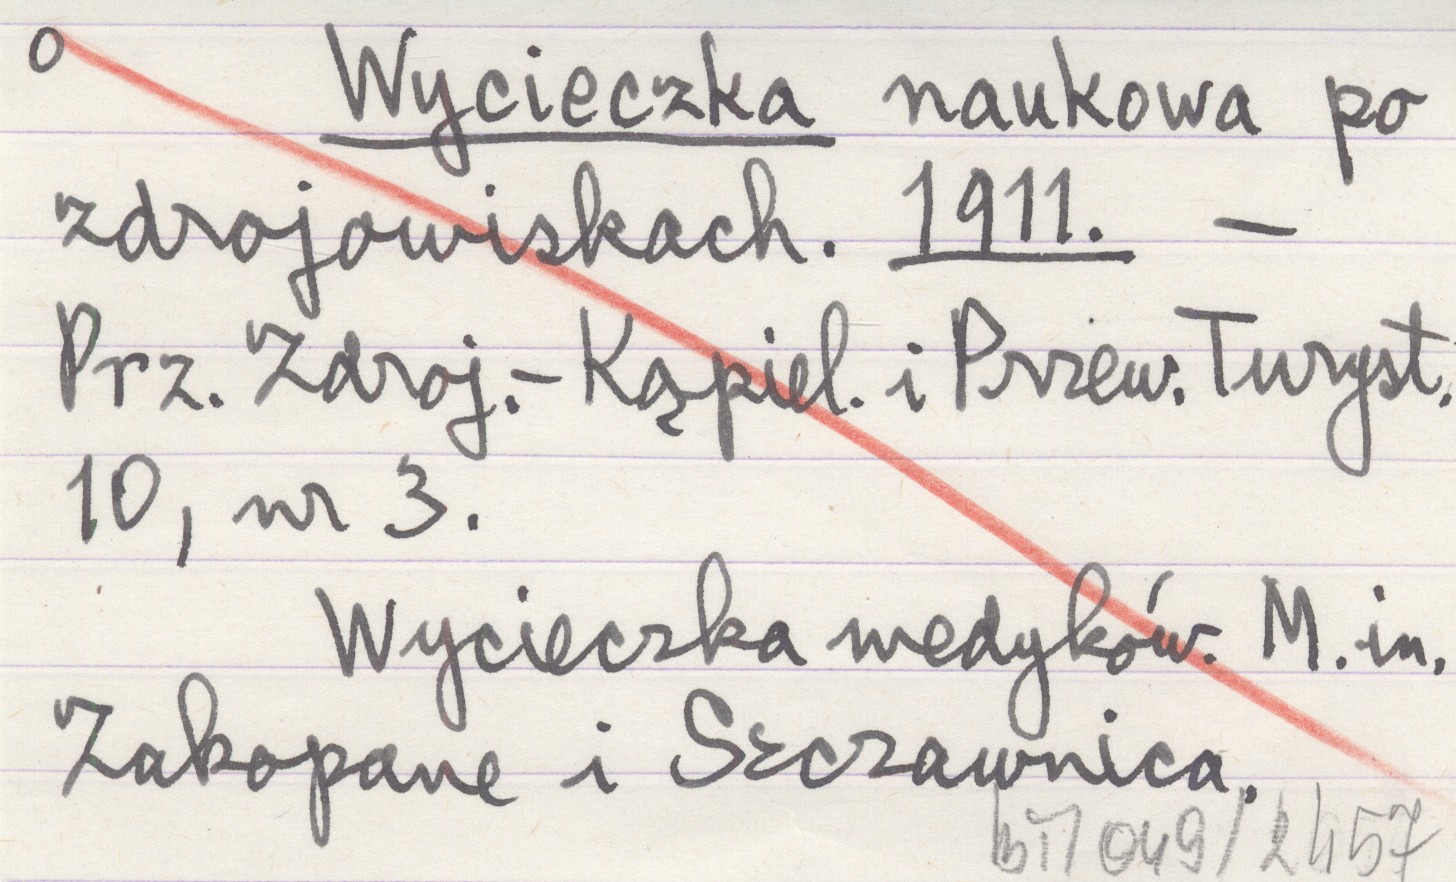 o Wycieczka naukowa po
zdrojowiskach. 1911. –
Prz. Zdroj.-Kąpiel. i Przew. Turyst.
10, nr 3.
Wycieczka medyków. M. in.
Zakopane i Szczawnica.
049/2457